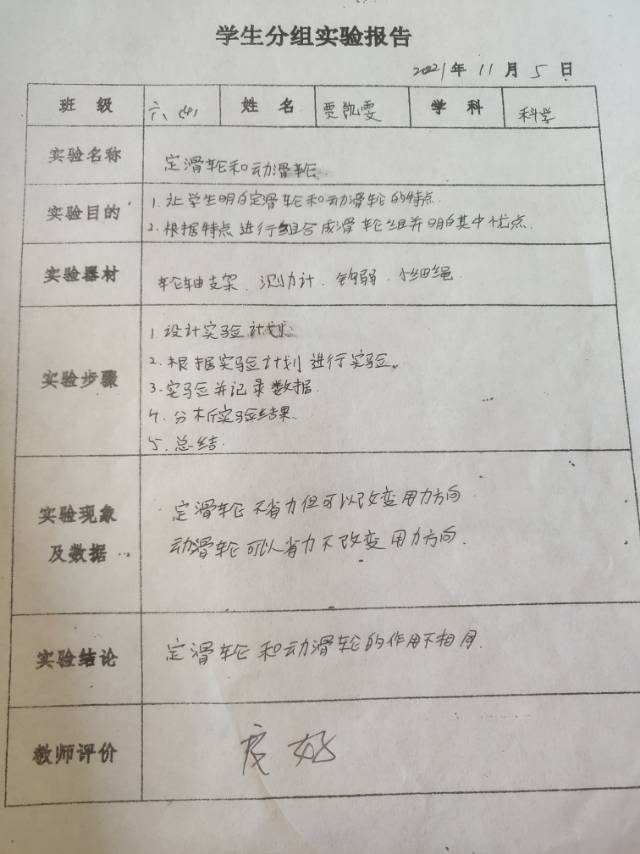 学生分组实验报告
2021年 11月 5日
班 级 六、(4) 姓 名 贾凯雯 学 科 科学
实验名称 定滑轮和动滑轮
实验目的 1. 让学生明白定滑轮和动滑轮的特点.
2. 根据特点进行组合成滑轮组并明白其中优点.
实验器材 轮轴支架、测力计、钩码、小细绳
实验步骤 1. 设计实验计划
2. 根据实验计划进行实验。
3. 实验并记录数据.
4. 分析实验结果.
5. 总结.
实验现象
及数据
定滑轮不省力但可以改变用力方向
动滑轮可以省力不改变用力方向.
实验结论 定滑轮和动滑轮的作用不相同.
教师评价 良好